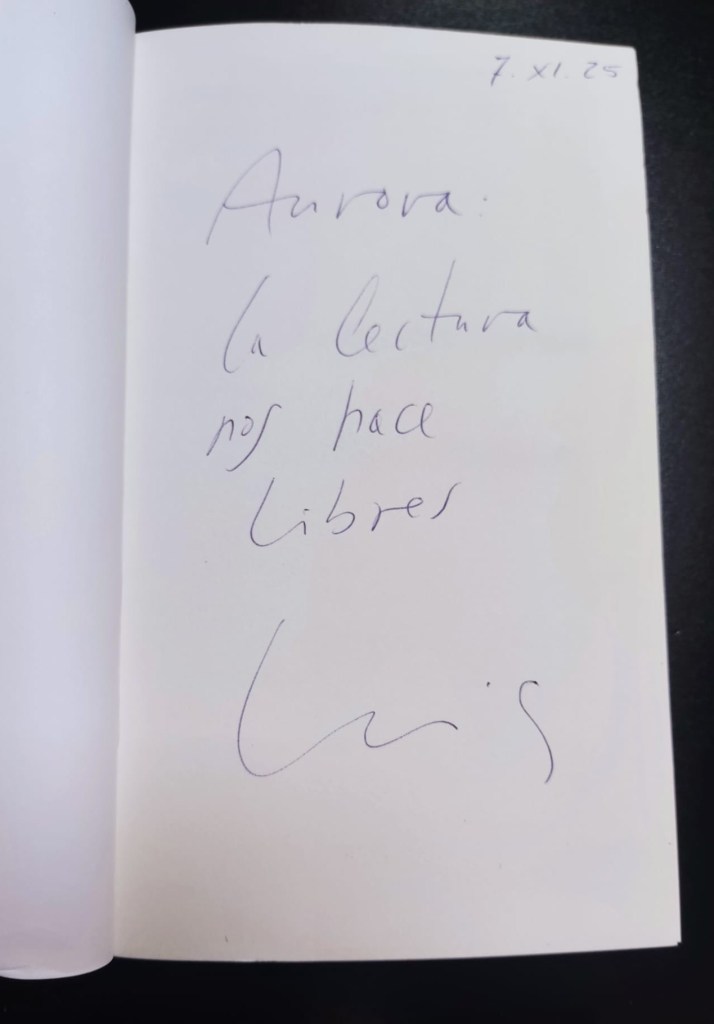 7. XI. 25
Aurora:
la lectura
nos hace
libres
Luis